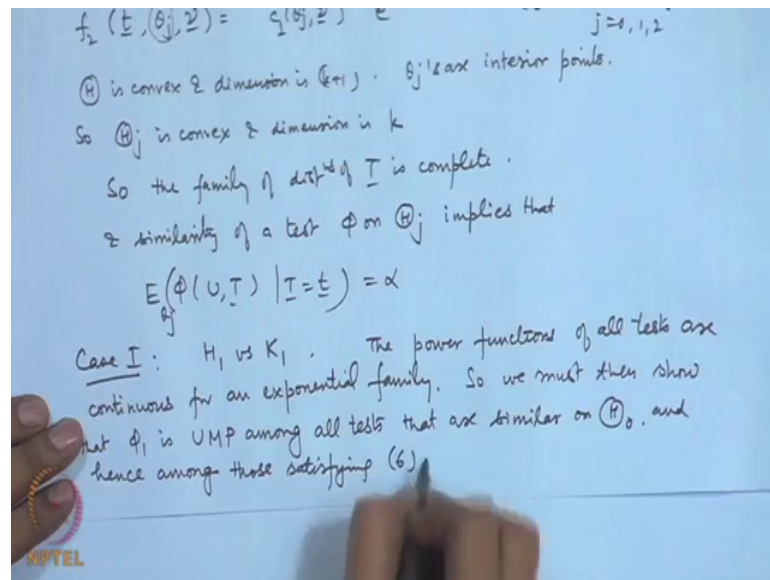 f₂ (t, θj, ν) = c₂(θj, ν) e
j=0, 1, 2
Ⓗ is convex & dimension is (k+1). θj's are interior points.
So Ⓗj is convex & dimension is k
So the family of distⁿˢ of T is complete.
& similarity of a test φ on Ⓗj implies that
E_θj (φ(U, T) | T = t) = α
Case I : H₁ vs K₁. The power functions of all tests are
continuous for an exponential family. So we must then show
that φ₁ is UMP among all tests that are similar on Ⓗ₀, and
hence among those satisfying (6)
NPTEL